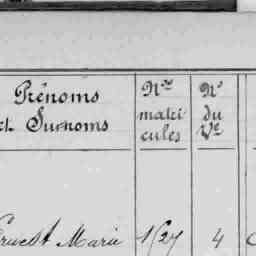 Prénoms
et Surnoms
Nos
matri
cules
No
du
Vé
Ernest Marie 1527 4